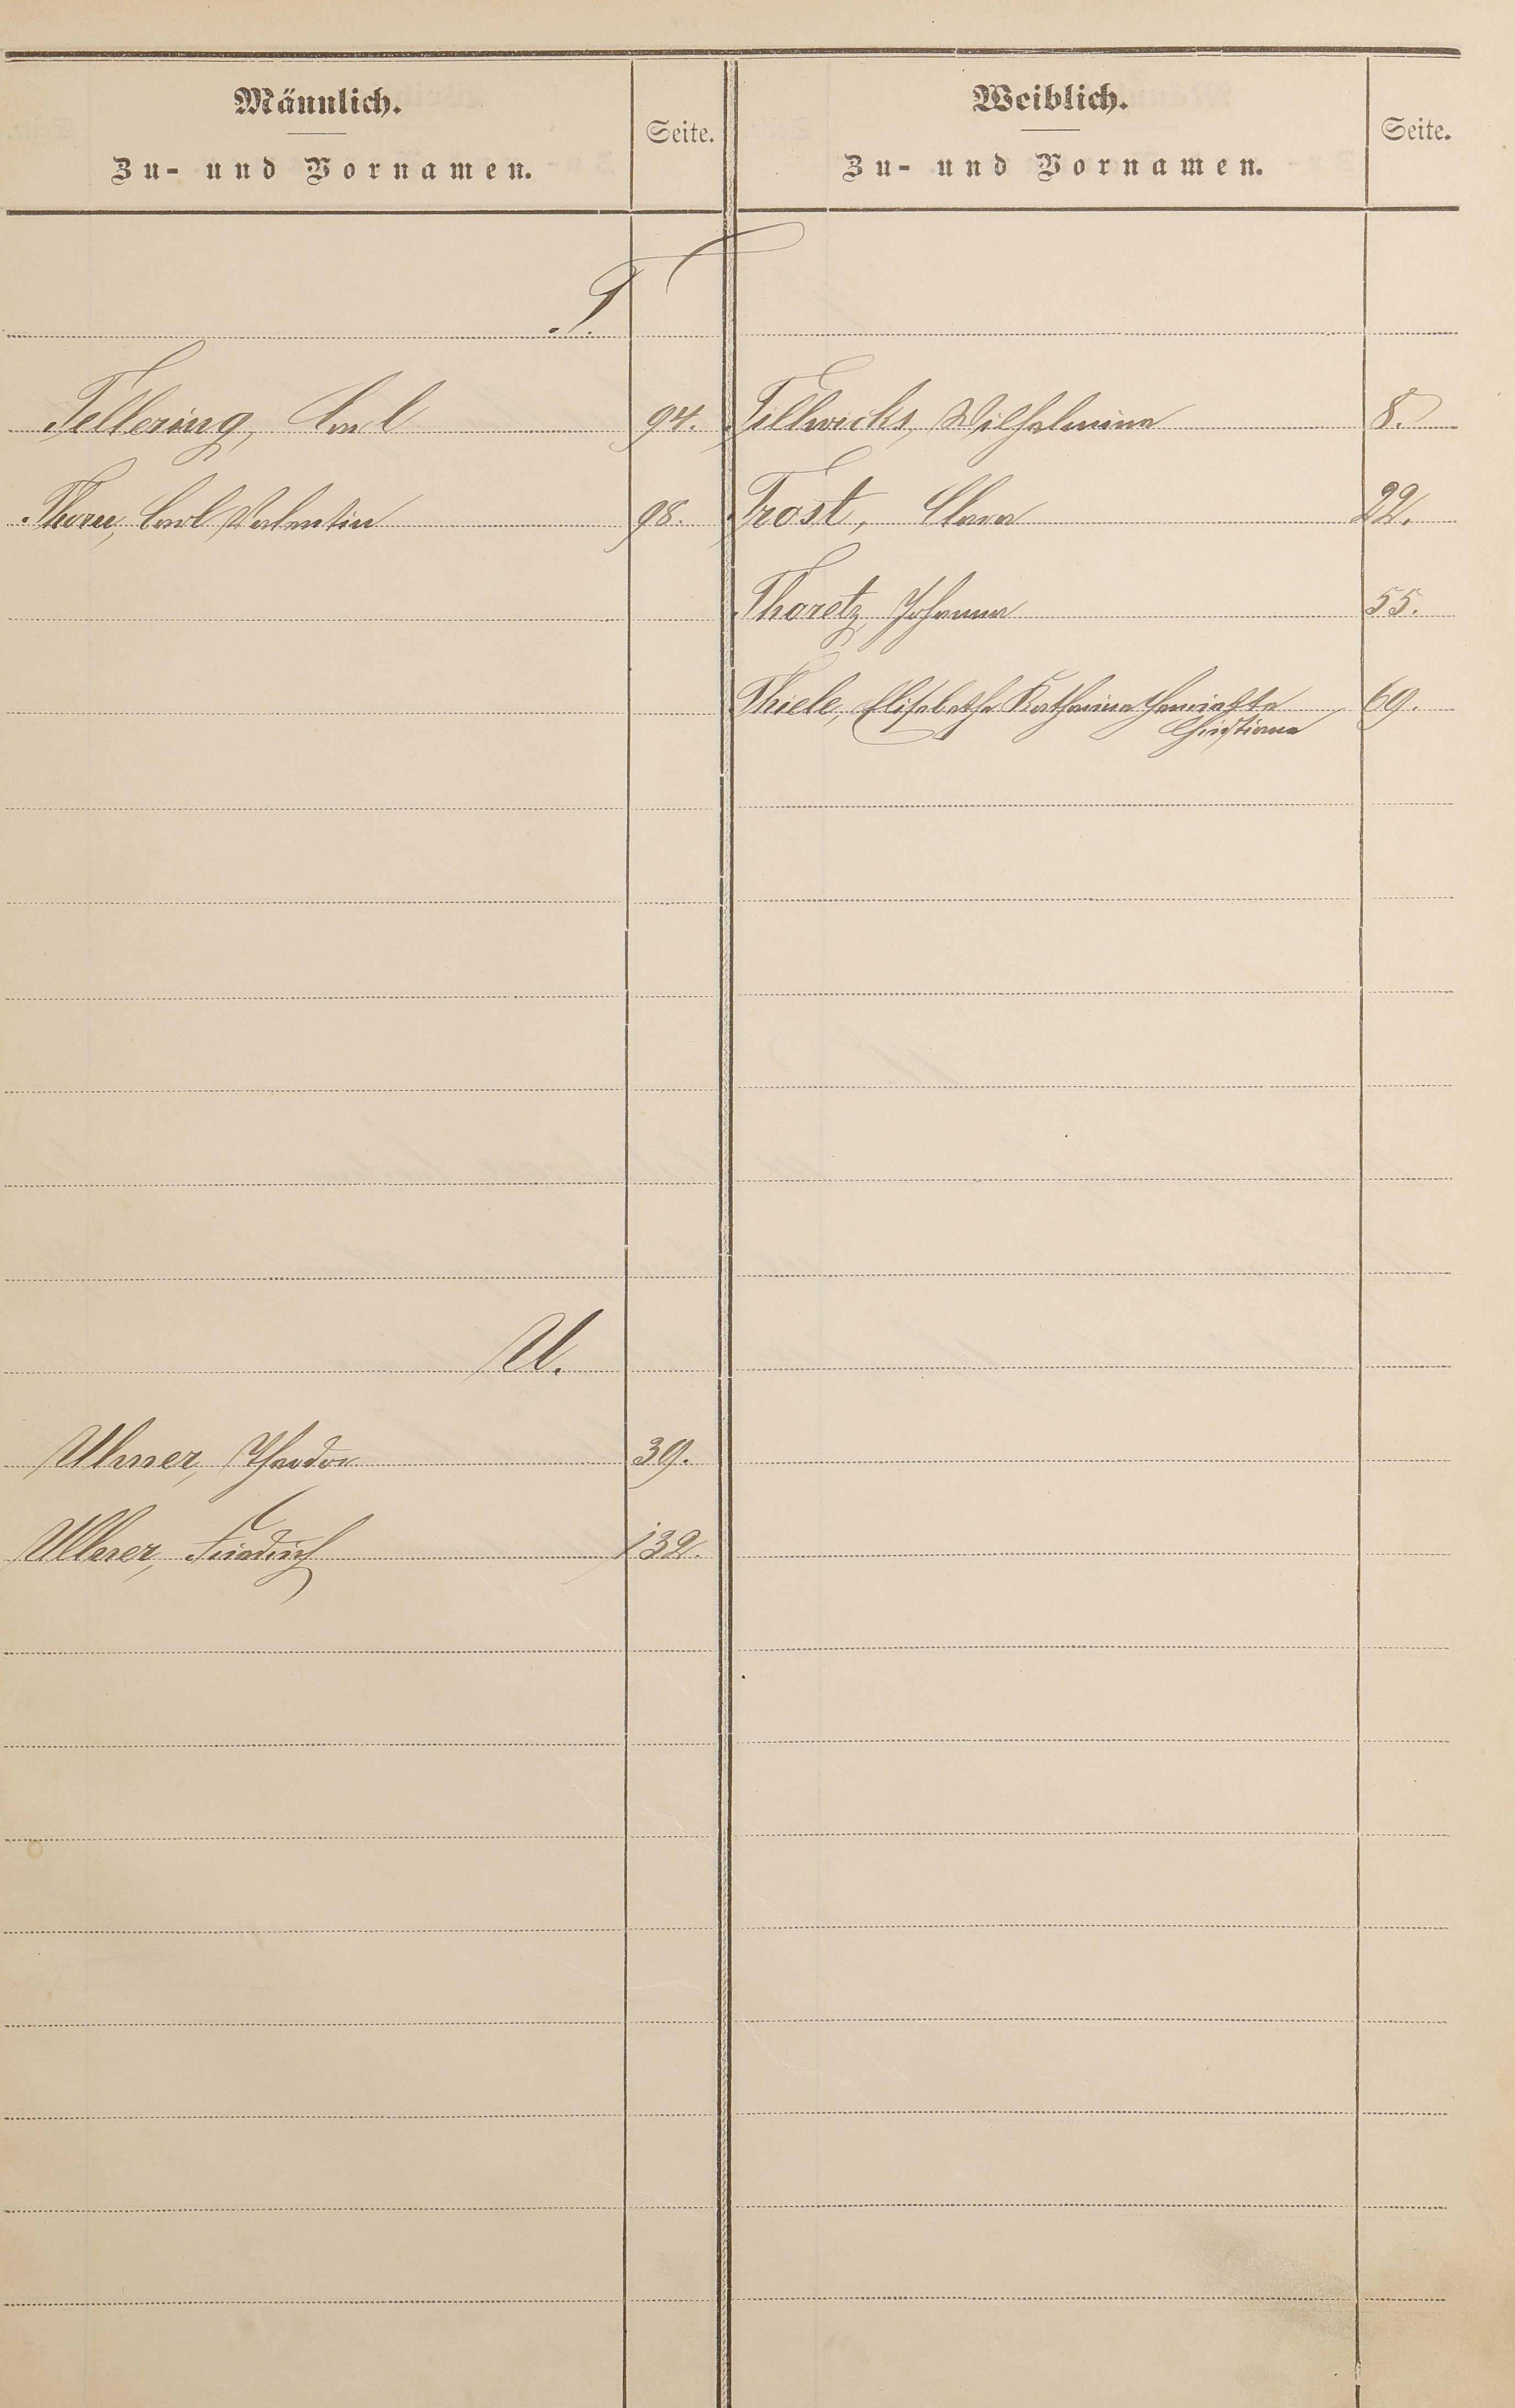 Männlich.
Zu- und Vornamen.
Seite.
Weiblich.
Zu- und Vornamen.
Seite.
T.
Tellering, Carl 94.
Tillwicks, Wilhelmine 8.
Thorn, Carl Valentin 98.
Trost, Clara 22.
Thoretz, Johanna 55.
Thiele, Elisabethe Katharina Henriette 69.
Christiane
U.
Ulmer, Theodor 39.
Ullner, Friedrich 132.